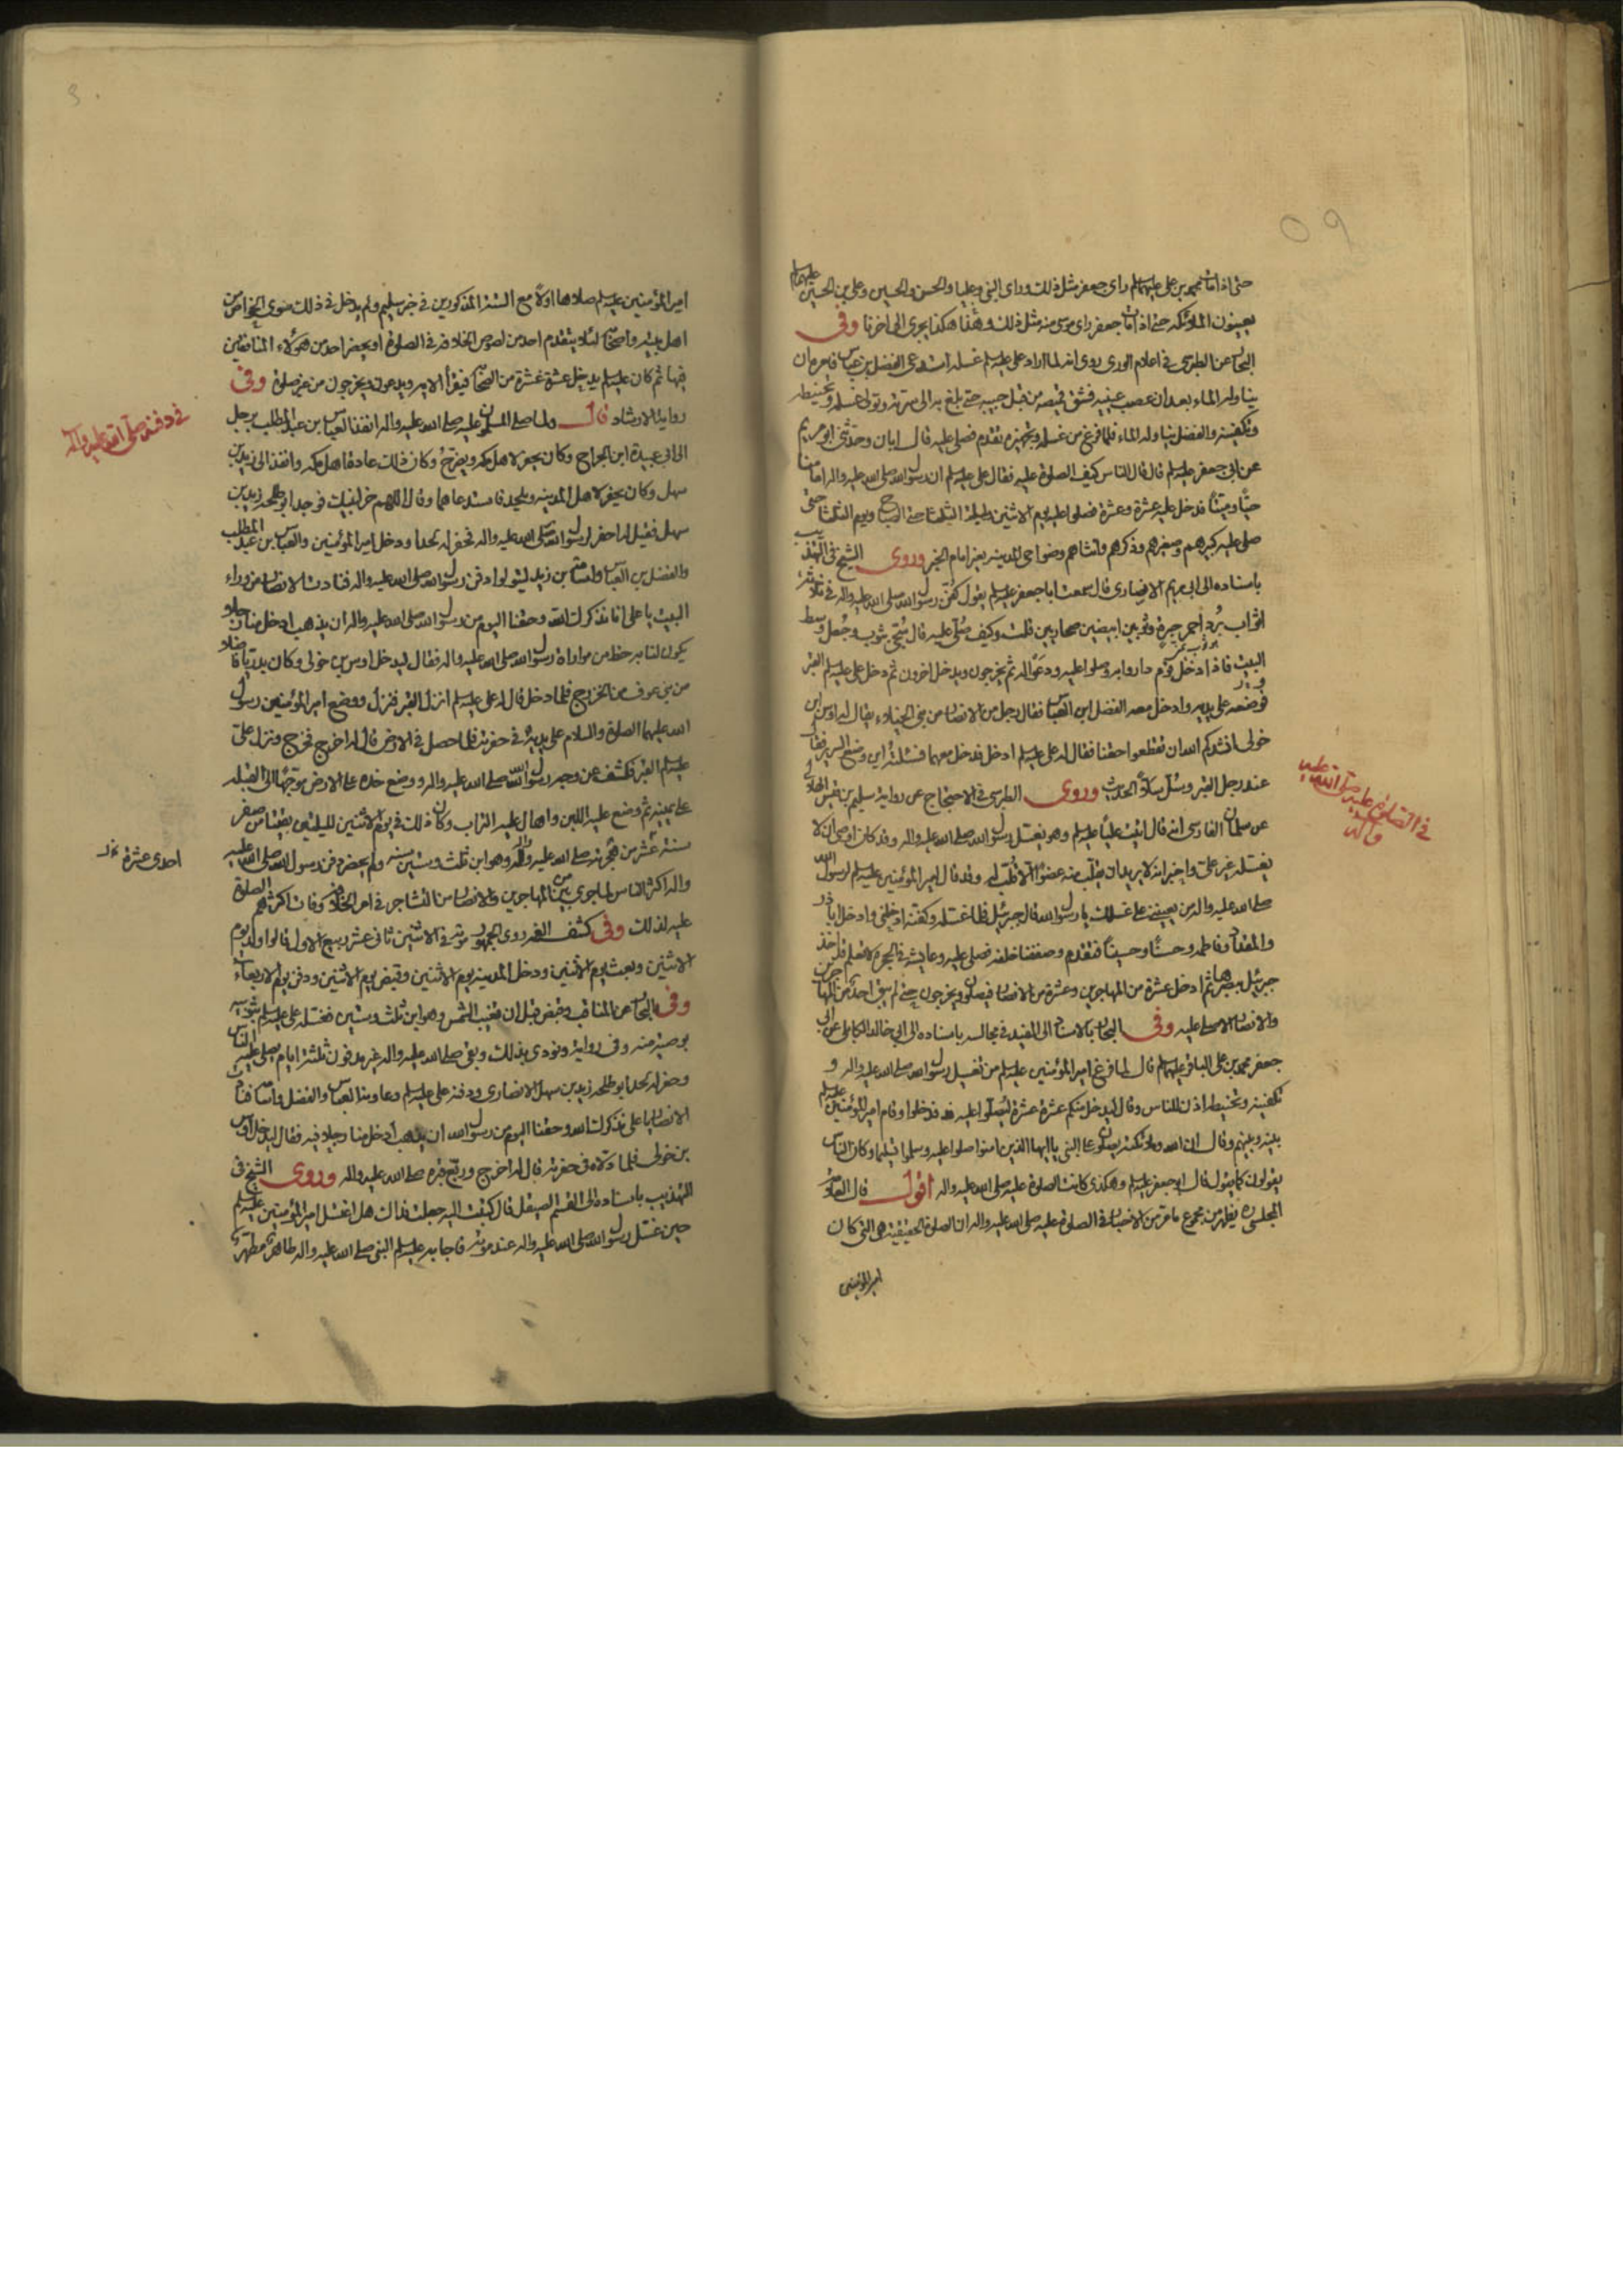 حتى اذا مات محمد بن على عليهما السلم راى جعفر مثل ذلك وراى النبى وعليا والحسن والحسين وعلى بن الحسين عليهم السلم
يعينون الملائكة حتى اذا مات جعفر راى موسى منه مثل ذلك وهذا هكذا يجرى الى اخرنا وفى
البحار عن الطبرسى فى اعلام الورى روى انه لما اراد على عليه السلم غسله استدعى الفضل بن عباس فامره ان
يناوله الماء بعد ان عصب عينيه فشق قميصه من قبل جيبه حتى بلغ به الى سرته وتولى غسله وتحنيطه
وتكفينه والفضل يناوله الماء فلما فرغ من غسله وتجهيزه تقدم فصلى عليه قال ابان وحدثنى ابو مريم
عن ابى جعفر عليه السلم قال قال الناس كيف الصلوة عليه فقال على عليه السلم ان رسول الله صلى الله عليه واله امامنا
حيًا وميتًا فدخل عليه عشرة وعشرة فصلوا عليه يوم الاثنين وليلة الثلثا حتى الصباح ويوم الثلثا حتى
صلى عليه كبيرهم وصغيرهم وذكرهم وانثاهم وضواحى المدينة بغير امام الخبر وروى الشيخ فى التهذيب
باسناده الى ابى مريم الانصارى قال سمعت ابا جعفر عليه السلم يقول كفن رسول الله صلى الله عليه واله فى ثلاثة
اثواب بُرد احمر حبرة وثوبين ابيضين صحاريين قلت وكيف صُلّى عليه قال سُجّى بثوب وجُعل وسط
البيت فاذا دخل قوم داروا به وصلوا عليه ودعوا له ثم يخرجون ويدخل اخرون ثم دخل على عليه السلم القبر
فوضعه على يديه وادخل معه الفضل ابن العباس فقال رجل من الانصار من بنى الخيلاء يقال له اوس ابن
خولى انشدكم الله ان تقطعوا حقنا فقال له على عليه السلم ادخل فدخل معهما فسئلته اين وضع السرير فقال
عند رجل القبر وسُلّ سَلًّا الحديث وروى الطبرسى فى الاحتجاج عن رواية سليم بن قيس الهلالى
عن سلمان الفارسى انه قال اتيت عليًا عليه السلم وهو يغسل رسول الله صلى الله عليه واله وقد كان اوصى ان لا
يغسله غير على واخبر انه لا يريد ان يقلب منه عضوًا الا قُلّب له وقد قال امير المؤمنين عليه السلم لرسول الله
صلى الله عليه واله من يعيننى على غسلك يا رسول الله قال جبرئيل فلما غسله وكفنه ادخلنى وادخل ابا ذر
والمقداد وفاطمة وحسنًا وحسينًا فتقدم وصففنا خلفه فصلى عليه وعايشة فى الحجرة لا تعلم قد اخذ
جبرئيل ببصرها ثم ادخل عشرة من المهاجرين وعشرة من الانصار فيصلون ويخرجون حتى لم يبق احد من المهاجرين
والانصار الا صلى عليه وفى البحار بالاسناد الى المفيد فى مجالسه باسناده الى ابى خالد الكابلى عن ابى
جعفر محمد بن على الباقر عليهما السلم قال لما فرغ امير المؤمنين عليه السلم من تغسيل رسول الله صلى الله عليه واله و
تكفينه وتحنيطه اذن للناس وقال ليدخل منكم عشرة عشرة ليصلوا عليه فدخلوا وقام امير المؤمنين عليه السلم
بينه وبينهم وقال ان الله وملائكته يصلون على النبى يا ايها الذين امنوا صلوا عليه وسلموا تسليما وكان الناس
يقولون كما يقول قال ابو جعفر عليه السلم وهكذى كانت الصلوة عليه صلى الله عليه واله اقول قال العلامة
المجلسى ره يظهر من مجموع ما مر من الاخبار فى الصلوة عليه صلى الله عليه واله ان الصلوة الحقيقية هى التى كان
امير المؤمنين
فى الصلوة عليه صلى الله عليه
واله
امير المؤمنين عليه السلم صلاها اولاً مع الستة المذكورين فى خبر سليم ولم يدخل فى ذلك سوى الخواص من
اهل بيته واصحابه لئلا يتقدم احد من لصوص الخلافة فى الصلوة او يحضر احد من هؤلاء المنافقين
فيها ثم كان عليه السلم يدخل عشرة عشرة من الصحابة فيقرأ الاية ويدعون ويخرجون من غير صلوة وفى
رواية الارشاد قال ولما صلى المسلمون عليه صلى الله عليه واله انفذ العباس بن عبد المطلب برجل
الى ابى عبيدة ابن الجراح وكان يحفر لاهل مكة ويضرح وكان ذلك عادة اهل مكة وانفذ الى زيد بن
سهل وكان يحفر لاهل المدينة ويلحد فاستدعاهما وقال اللهم خر لنبيك فوجد ابو طلحة زيد بن
سهل فقيل له احفر لرسول الله صلى الله عليه واله فحفر له لحدًا ودخل امير المؤمنين والعباس بن عبد المطلب
والفضل بن العباس واسامة بن زيد ليتولوا دفن رسول الله صلى الله عليه واله فنادت الانصار من وراء
البيت يا على انا نذكرك الله وحقنا اليوم من رسول الله صلى الله عليه واله ان يذهب ادخل منا رجلا
يكون لنا به حظ من مواراة رسول الله صلى الله عليه واله فقال ليدخل اوس بن خولى وكان بدريًا فاضلا
من بنى عوف من الخزرج فلما دخل قال له على عليه السلم انزل القبر فنزل ووضع امير المؤمنين رسول
الله عليهما الصلوة والسلام على يديه فى حفرته فلما حصل فى الارض قال له اخرج فخرج ونزل على
عليه السلم القبر فكشف عن وجه رسول الله صلى الله عليه واله ووضع خده على الارض موجّهًا الى القبلة
على يمينه ثم وضع عليه اللبن واهال عليه التراب وكان ذلك فى يوم الاثنين لليلتين بقيتا من صفر
سنة عشر من هجرته صلى الله عليه واله وهو ابن ثلث وستين سنة ولم يحضر دفن رسول الله صلى الله عليه
واله اكثر الناس لما جرى بين المهاجرين والانصار من التشاجر فى امر الخلافة وفات اكثرهم الصلوة
عليه لذلك وفى كشف الغمة روى الجمهور موته فى الاثنين ثانى عشر ربيع الاول قالوا ولد يوم
الاثنين وبعث يوم الاثنين ودخل المدينة يوم الاثنين وقبض يوم الاثنين ودفن يوم الاربعاء
وفى البحار عن المناقب وقبض قبل ان تغيب الشمس وهو ابن ثلث وستين فغسله على عليه السلم بثوبيه
بوصية منه وفى رواية ونودى بذلك وبقى صلى الله عليه واله غير مدفون ثلثة ايام يصلى عليه الناس
وحفر له لحدا ابو طلحة زيد بن سهل الانصارى ودفنه على عليه السلم وعاونه العباس والفضل واسامة فنادت
الانصار يا على نذكرك الله وحقنا اليوم من رسول الله ان يذهب ادخل منا رجلا فيه فقال ليدخل اوس
بن خولى فلما دلاه فى حفرته قال له اخرج وربع قبره صلى الله عليه واله وروى الشيخ فى
التهذيب باسناده الى القسم الصيقل قال كتبت اليه جعلت فداك هل اغتسل امير المؤمنين عليه السلم
حين غسل رسول الله صلى الله عليه واله عند موته فاجابه عليه السلم النبى صلى الله عليه واله طاهر مطهر
فى دفنه صلى الله عليه واله
احدى عشرة